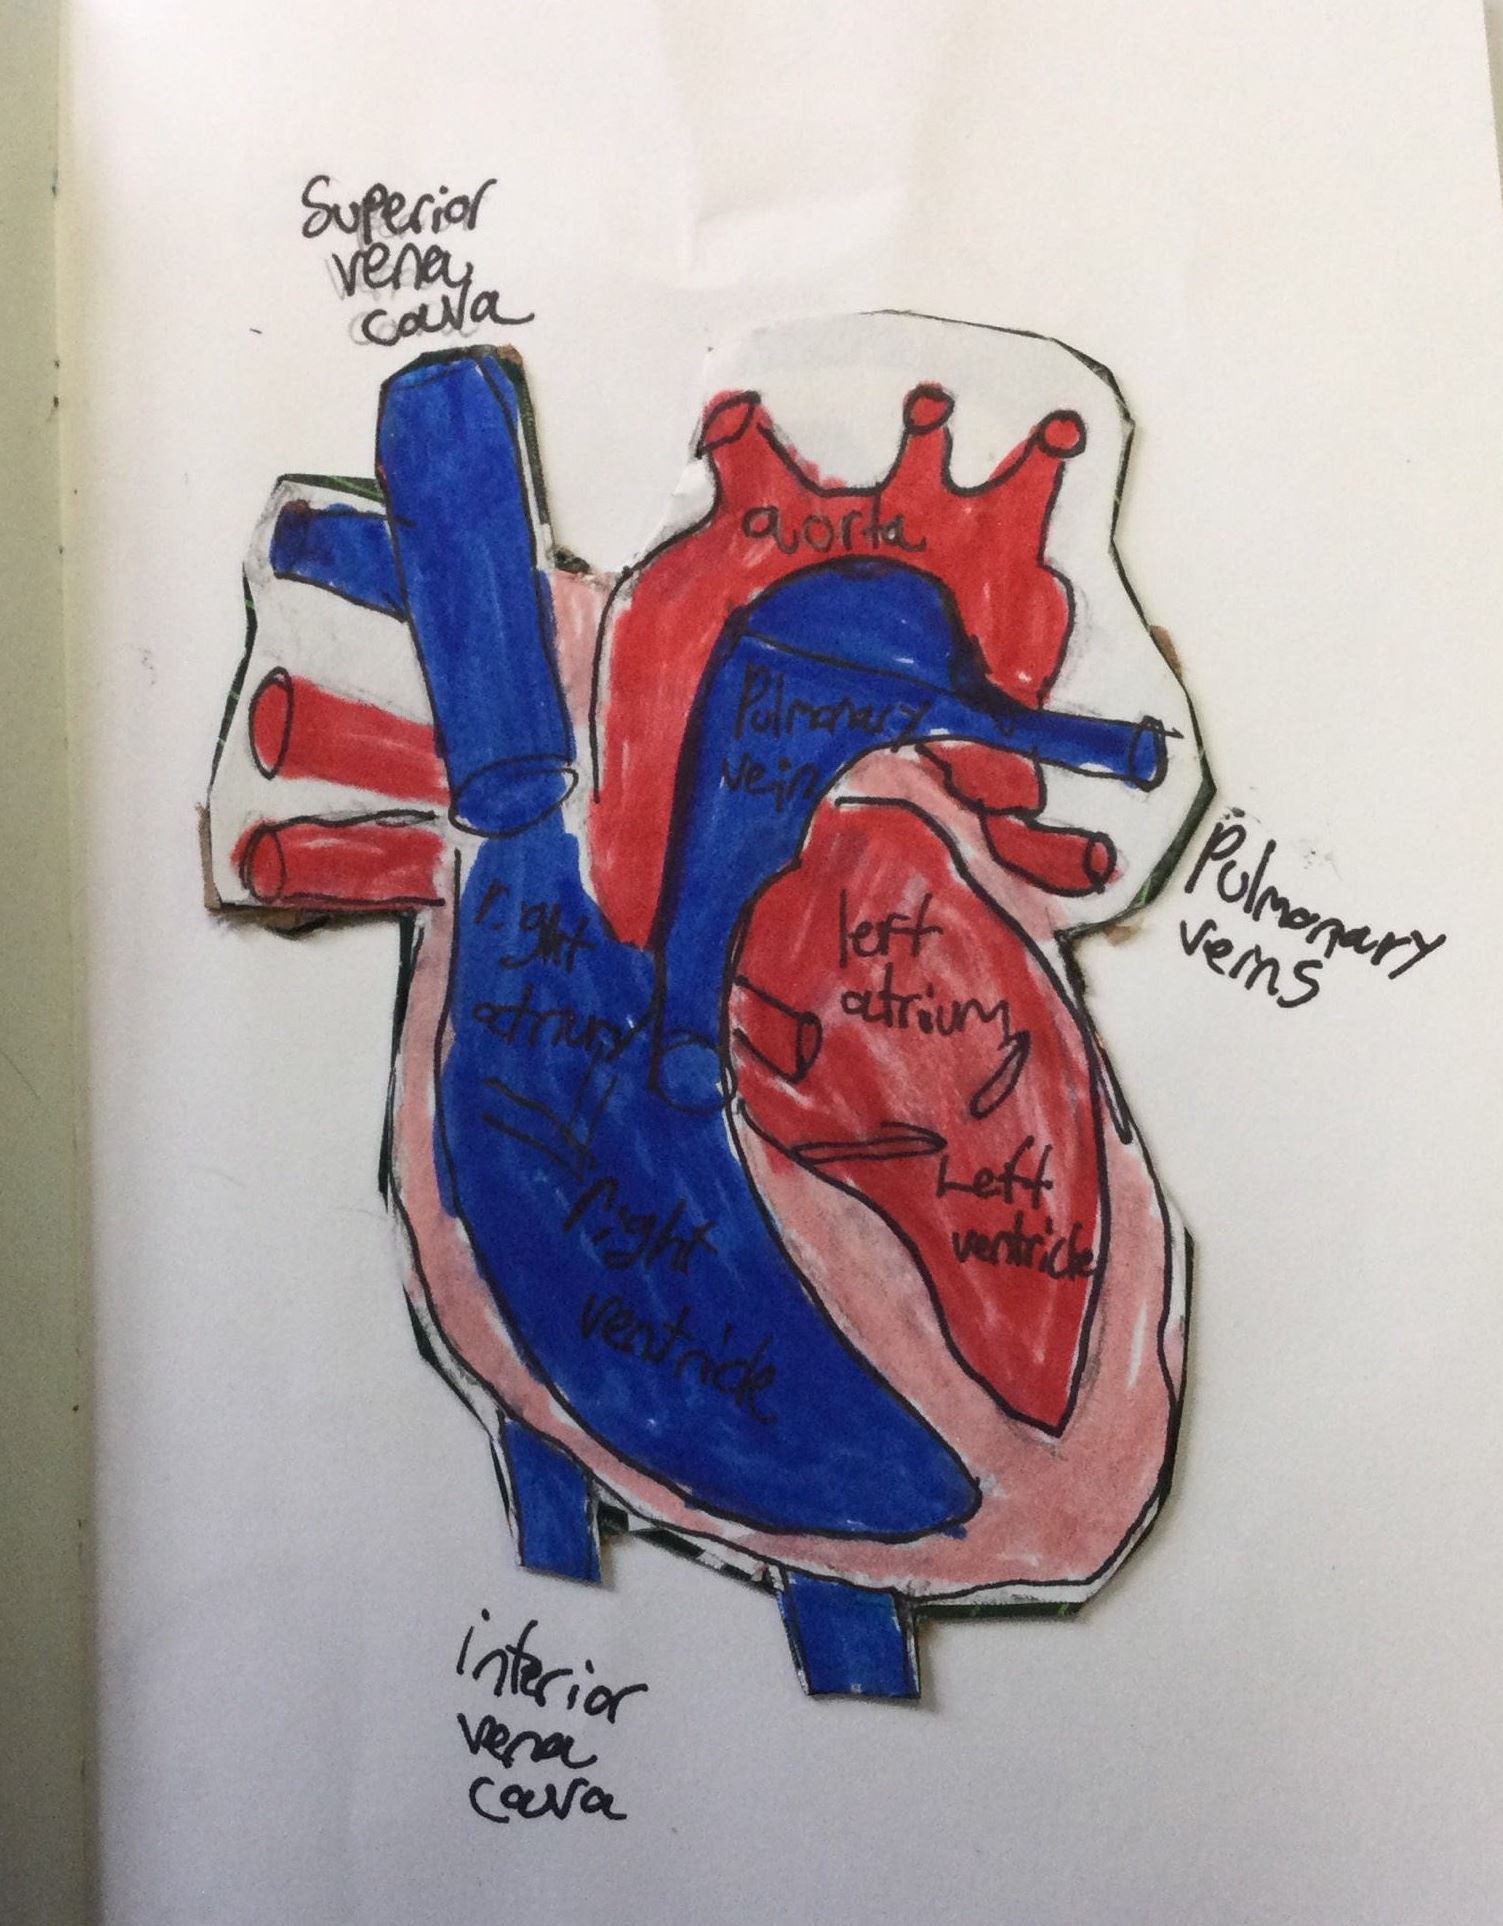 Superior
vena
cava
aorta
Pulmonary
vein
Pulmonary
veins
left
atrium
right
atrium
Left
ventricle
right
ventricle
interior
vena
cava